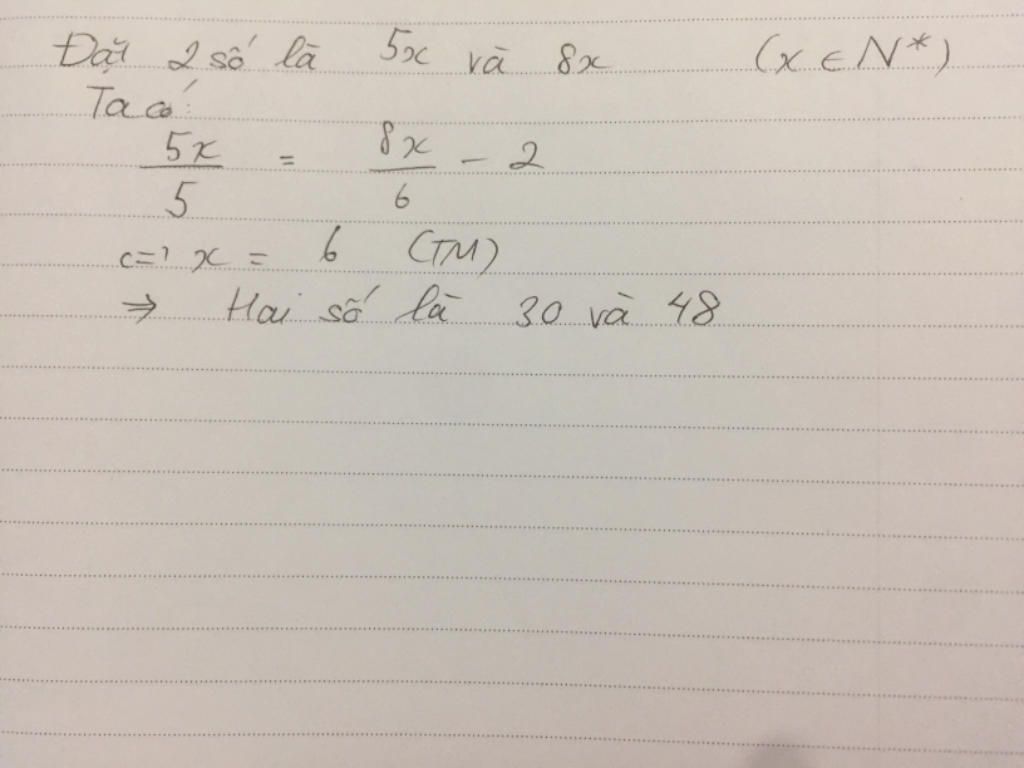 Đặt 2 số là 5x và 8x (x ∈ N*)
Ta có:
5x/5 = 8x/6 - 2
<=> x = 6 (TM)
=> Hai số là 30 và 48